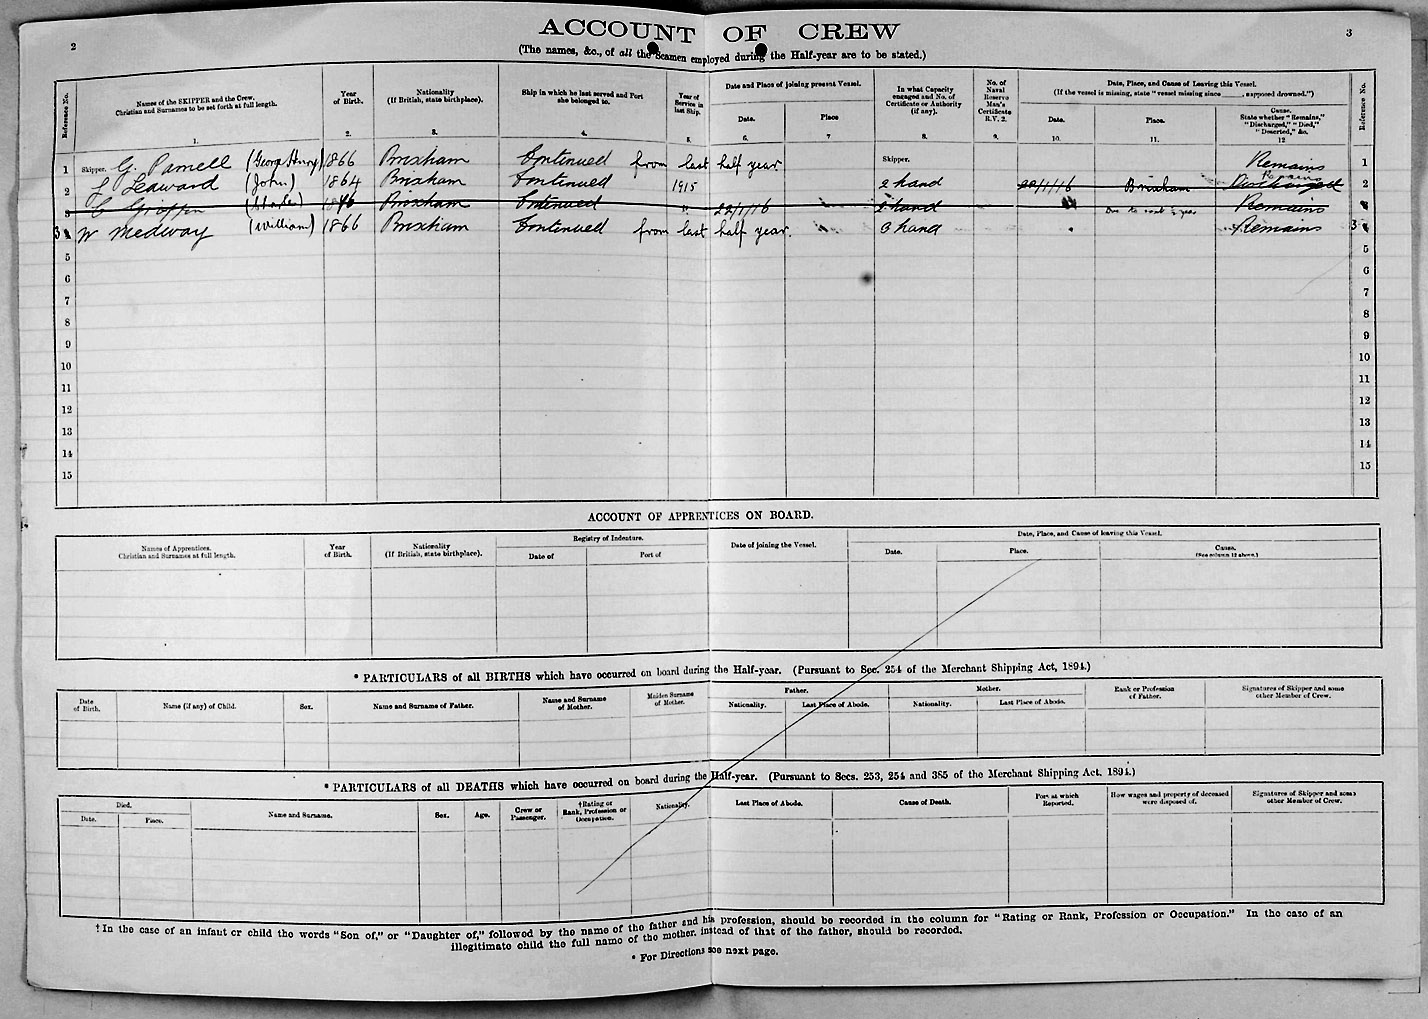 2
ACCOUNT OF CREW
3
(The names, &c., of all the Seamen employed during the Half-year are to be stated.)
Reference No.
Names of the SKIPPER and the Crew.
Christian and Surnames to be set forth at full length.
1.
Year of Birth.
2.
Nationality
(If British, state birthplace).
3.
Ship in which he last served and Port she belonged to.
4.
Year of Service in last Ship.
5.
Date and Place of joining present Vessel.
Date.
6.
Place
7
In what Capacity engaged and No. of Certificate or Authority (if any).
8.
No. of Naval Reserve Man's Certificate R.V. 2.
9.
Date, Place, and Cause of Leaving this Vessel.
(If the vessel is missing, state "vessel missing since ____, supposed drowned.")
Date.
10.
Place.
11.
Cause.
State whether "Remains," "Discharged," "Died," "Deserted," &c.
12
Reference No.
1 Skipper. G. Parnell (George Henry) 1866 Brixham Continued from last half year. Skipper. Remains 1
2 Leaward (John) 1864 Brixham Continued 1915 2 hand 22/1/16 Brixham Discharged Remains 2
3 C Griffin (Charles) Brixham Continued " 22/1/16 2 hand Remains
3 W Medway (William) 1866 Brixham Continued from last half year. 3 hand Remains 3
5 5
6 6
7 7
8 8
9 9
10 10
11 11
12 12
13 13
14 14
15 15
ACCOUNT OF APPRENTICES ON BOARD.
Names of Apprentices.
Christian and Surnames at full length.
Year of Birth.
Nationality
(If British, state birthplace).
Registry of Indenture.
Date of
Port of
Date of joining the Vessel.
Date, Place, and Cause of leaving this Vessel.
Date.
Place.
Cause.
(See column 12 above.)
* PARTICULARS of all BIRTHS which have occurred on board during the Half-year. (Pursuant to Sec. 254 of the Merchant Shipping Act, 1894.)
Date of Birth.
Name (if any) of Child.
Sex.
Name and Surname of Father.
Name and Surname of Mother.
Maiden Surname of Mother.
Father.
Nationality.
Last Place of Abode.
Mother.
Nationality.
Last Place of Abode.
Rank or Profession of Father.
Signatures of Skipper and some other Member of Crew.
* PARTICULARS of all DEATHS which have occurred on board during the Half-year. (Pursuant to Secs. 253, 254 and 385 of the Merchant Shipping Act, 1894.)
Died.
Date.
Place.
Name and Surname.
Sex.
Age.
Crew or Passenger.
†Rating or Rank, Profession or Occupation.
Nationality.
Last Place of Abode.
Cause of Death.
Port at which Reported.
How wages and property of deceased were disposed of.
Signatures of Skipper and some other Member of Crew.
† In the case of an infant or child the words "Son of," or "Daughter of," followed by the name of the father and his profession, should be recorded in the column for "Rating or Rank, Profession or Occupation." In the case of an
illegitimate child the full name of the mother, instead of that of the father, should be recorded.
* For Directions see next page.